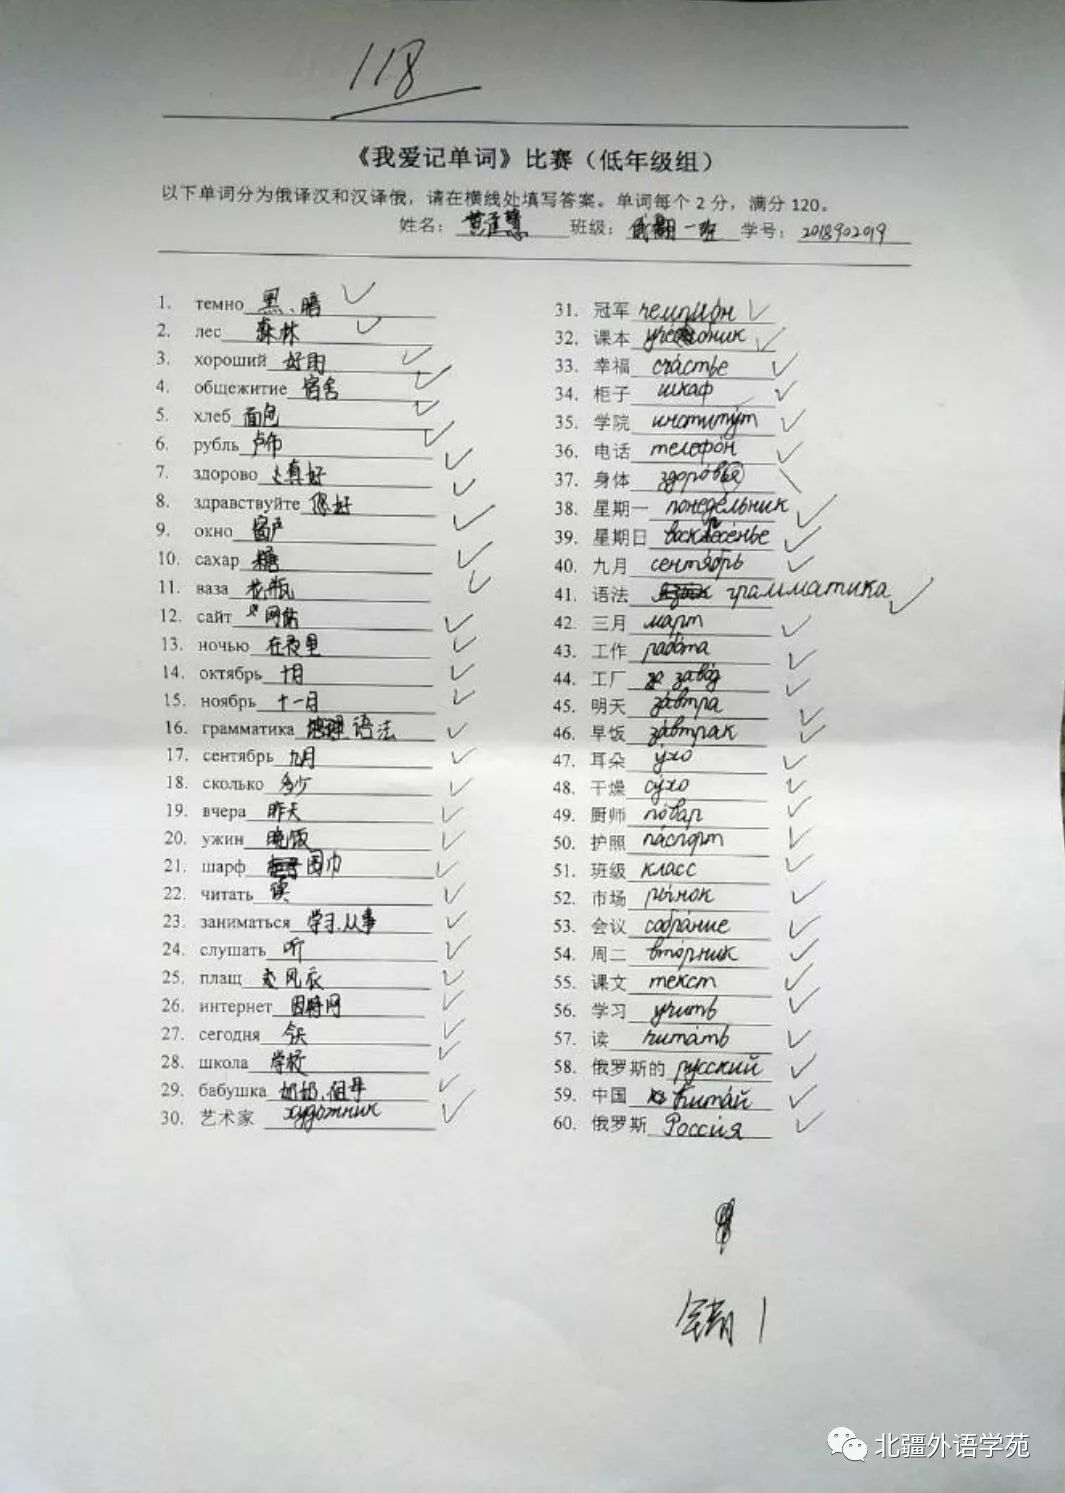 118
《我爱记单词》比赛（低年级组）
以下单词分为俄译汉和汉译俄，请在横线处填写答案。单词每个 2 分，满分 120。
姓名： 班级： 一班 学号： 2018902019
1. темно 黑、暗
2. лес 森林
3. хороший 好的
4. общежитие 宿舍
5. хлеб 面包
6. рубль 卢布
7. здорово 真好
8. здравствуйте 您好
9. окно 窗户
10. сахар 糖
11. ваза 花瓶
12. сайт 网站
13. ночью 在夜里
14. октябрь 十月
15. ноябрь 十一月
16. грамматика 语法
17. сентябрь 九月
18. сколько 多少
19. вчера 昨天
20. ужин 晚饭
21. шарф 围巾
22. читать 读
23. заниматься 学习、从事
24. слушать 听
25. плащ 风衣
26. интернет 因特网
27. сегодня 今天
28. школа 学校
29. бабушка 奶奶、祖母
30. 艺术家 художник
31. 冠军 чемпио́н
32. 课本 учебник
33. 幸福 сча́стье
34. 柜子 шкаф
35. 学院 институ́т
36. 电话 телефо́н
37. 身体 здоро́вья
38. 星期一 понеде́льник
39. 星期日 воскресе́нье
40. 九月 сентя́брь
41. 语法 грамматика
42. 三月 март
43. 工作 рабо́та
44. 工厂 заво́д
45. 明天 за́втра
46. 早饭 за́втрак
47. 耳朵 у́хо
48. 干燥 су́хо
49. 厨师 по́вар
50. 护照 па́спорт
51. 班级 класс
52. 市场 ры́нок
53. 会议 собра́ние
54. 周二 вто́рник
55. 课文 текст
56. 学习 учить
57. 读 чита́ть
58. 俄罗斯的 ру́сский
59. 中国 Кита́й
60. 俄罗斯 Росси́я
错 1
北疆外语学苑